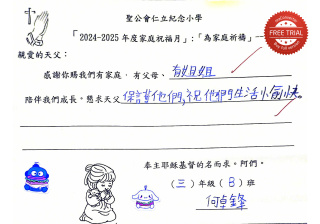 聖公會仁立紀念小學
「2024-2025年度家庭祝福月」:「為家庭祈禱」
FREE TRIAL
親愛的天父:
感謝你賜我們有家庭,有父母、有姐姐
陪伴我們成長。懇求天父保護他們,祝他們生活愉快
奉主耶穌基督的名而求。阿們。
(三)年級(B)班
何卓鋒